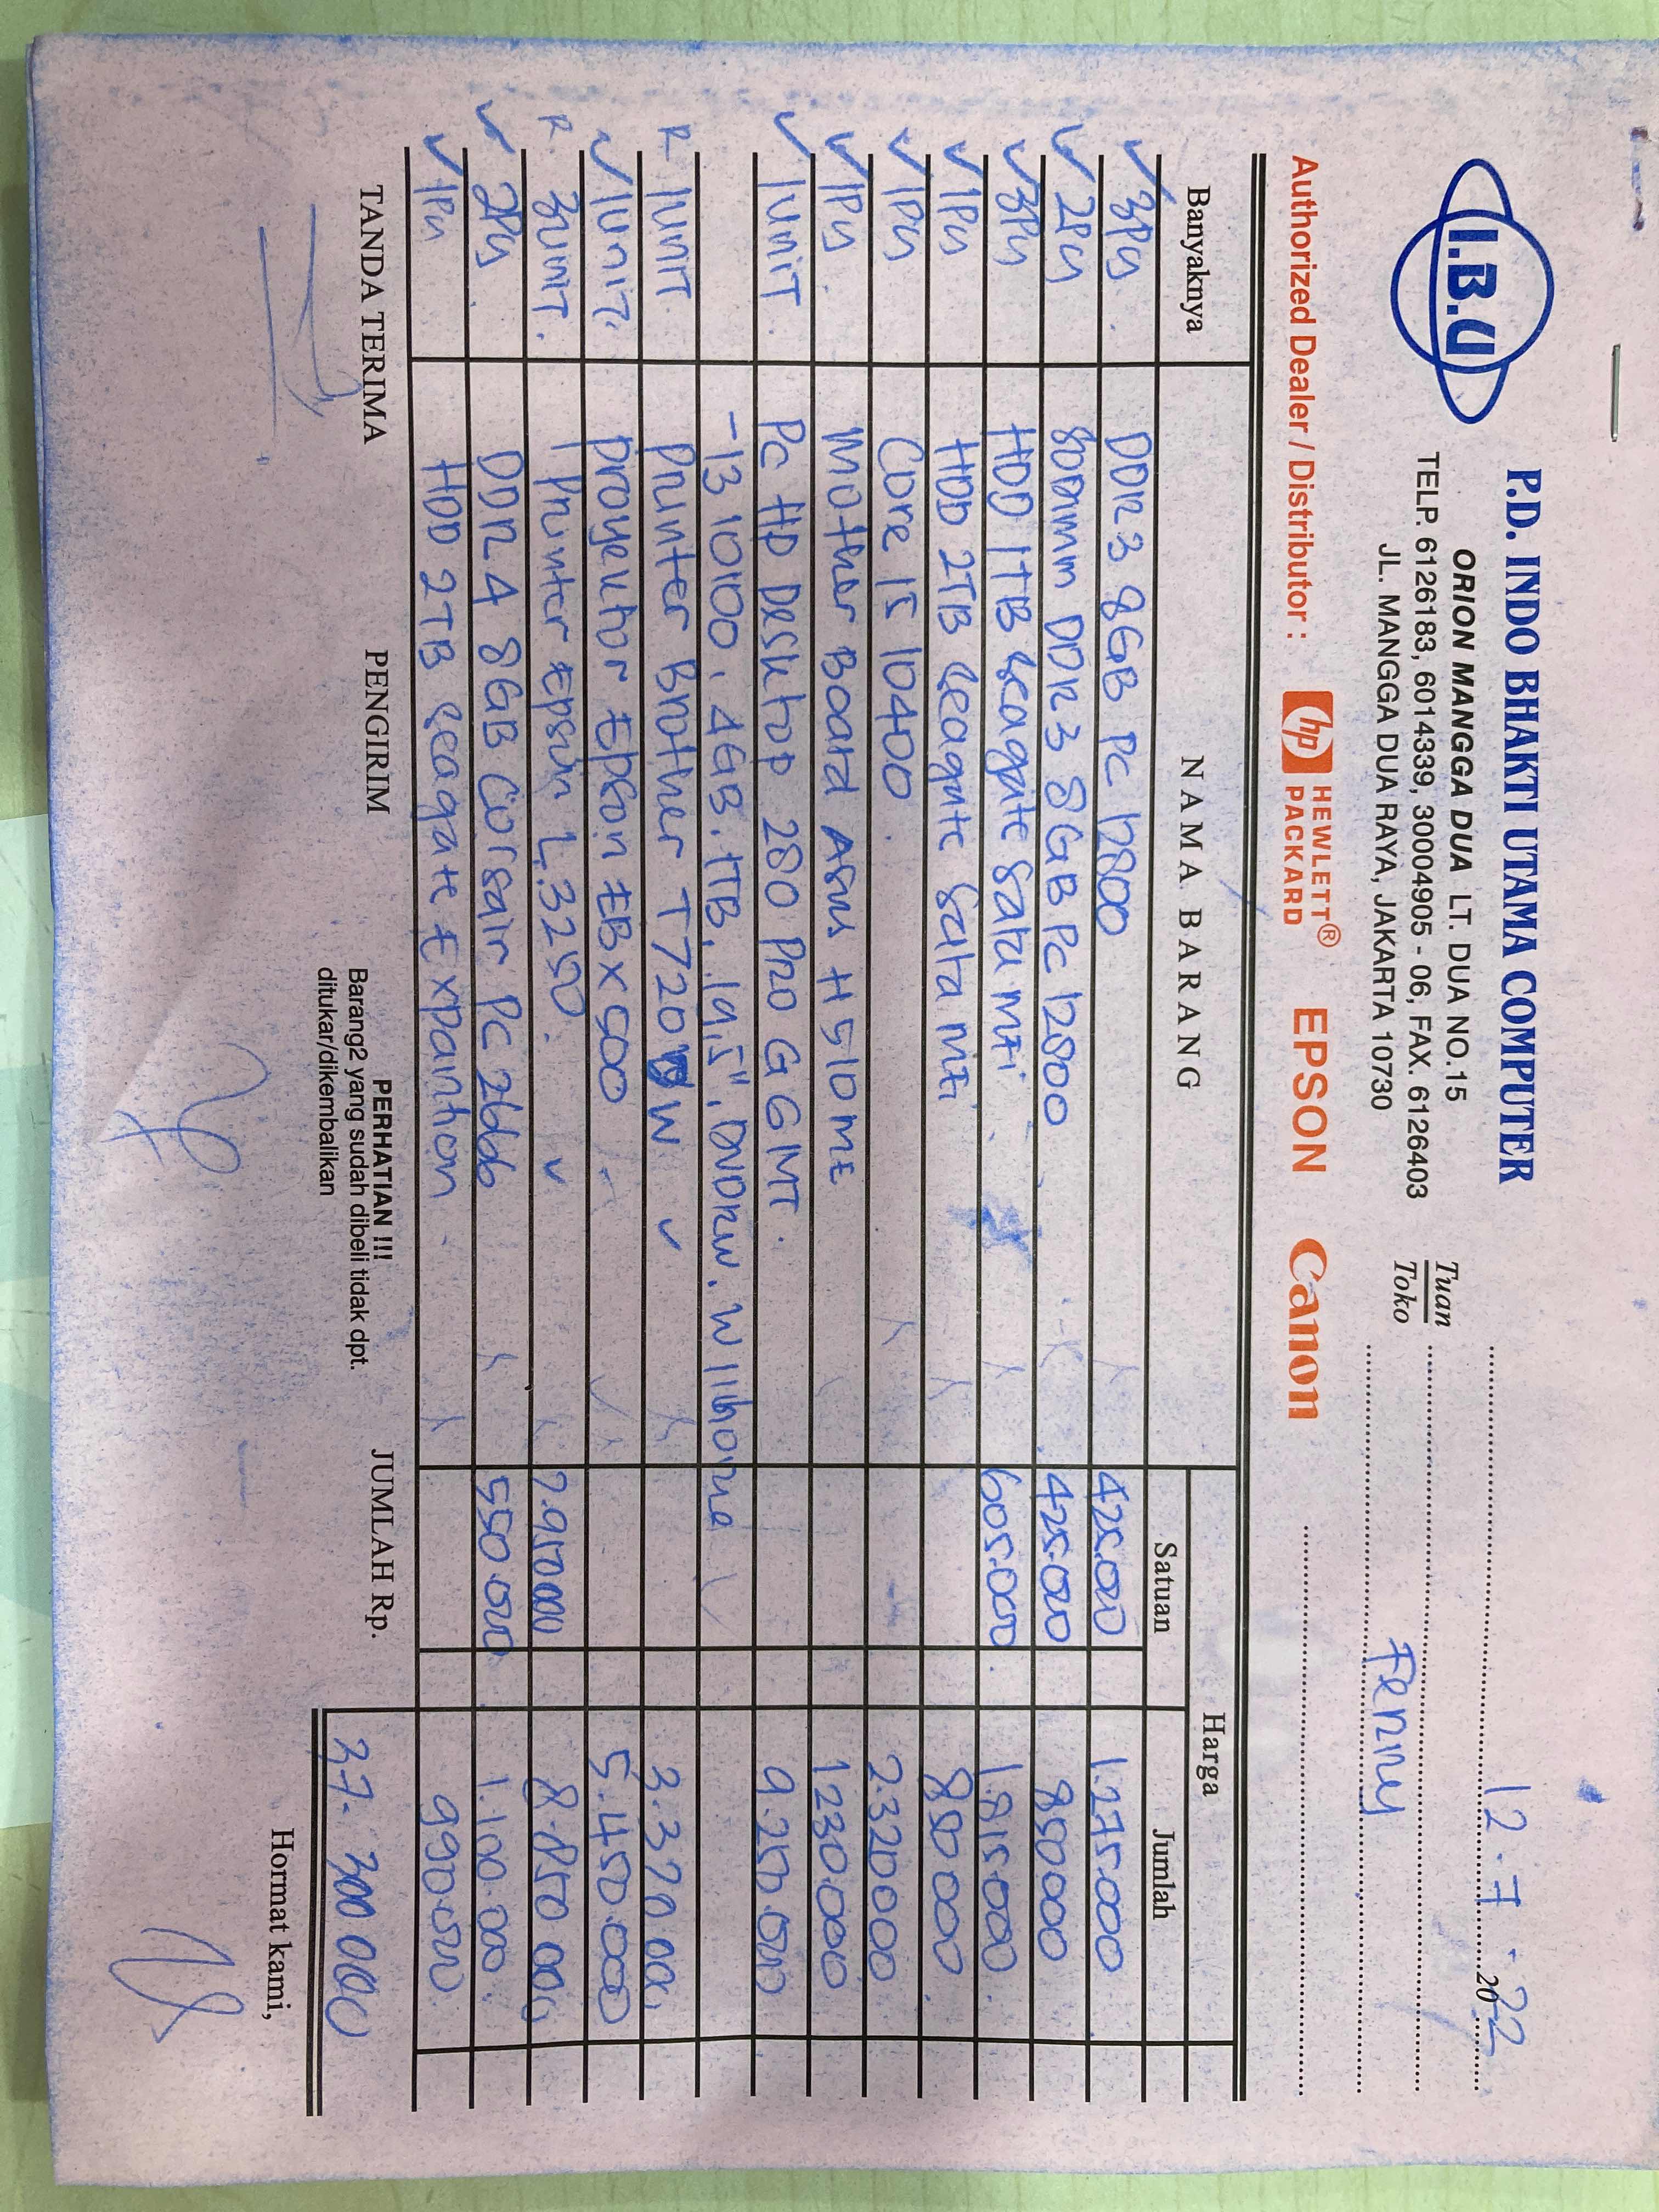 I.B.U
P.D. INDO BHAKTI UTAMA COMPUTER
ORION MANGGA DUA LT. DUA NO.15
TELP. 6126183, 6014339, 30004905 - 06, FAX. 6126403
JL. MANGGA DUA RAYA, JAKARTA 10730
12 - 7 - 2022
Tuan
Toko
Fenny
Authorized Dealer / Distributor : hp HEWLETT® PACKARD EPSON Canon
Banyaknya NAMA BARANG Harga
Satuan Jumlah
3Pcs DDR3 8GB PC 12800 425.000 1.275.000
2Pcs Sodimm DDR3 8GB PC 12800 425.000 850000
3Pcs HDD 1TB Seagate Sata 605.000 1.815.000
1Pcs HDD 2TB Seagate Sata 850000
1Pcs Core i5 10400 2.320000
1Pcs Mother Board Asus H510ME 1230.000
1unit PC HP Desktop 280 Pro G6 MT 9.250.000
- i3 10100, 4GB, 1TB, 19,5", DVDRW, W11home
R 1unit Printer Brother T720DW 3.370.000
1unit Proyektor Epson EBX500 5.450.000
R 3unit Printer Epson L.3250 2.950000 8.850.000
2Pcs DDR4 8GB Corsair PC 2666 550.000 1.100.000
1Pcs HDD 2TB Seagate Expantion 990.000
TANDA TERIMA PENGIRIM JUMLAH Rp. 37.300.000
PERHATIAN !!!
Barang2 yang sudah dibeli tidak dpt.
ditukar/dikembalikan
Hormat kami,